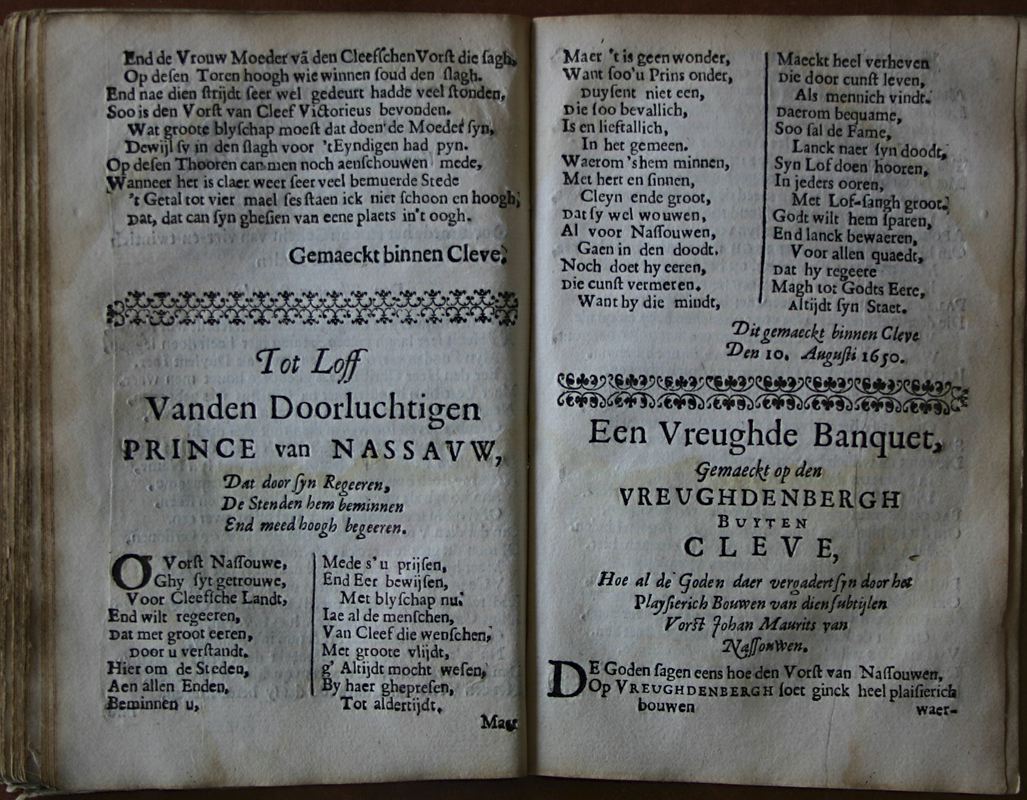 End de Vrouw Moeder vā den Cleefschen Vorst die sagh,
Op desen Toren hoogh wie winnen soud den slagh.
End nae dien strijdt seer wel gedeurt hadde veel stonden,
Soo is den Vorst van Cleef Victorieus bevonden.
Wat groote blyschap moest dat doen de Moeder syn,
Dewijl sy in den slagh voor 't Eyndigen had pyn.
Op desen Thooren can men noch aenschouwen mede,
Wanneer het is claer weer seer veel bemuerde Stede
't Getal tot vier mael ses staen ick niet schoon en hoogh,
Dat, dat can syn ghesien van eene plaets in't oogh.
Gemaeckt binnen Cleve.
Tot Loff
Vanden Doorluchtigen
PRINCE van NASSAVW,
Dat door syn Regeeren,
De Stenden hem beminnen
End meed hoogh begeeren.
O Vorst Nassouwe,
Ghy syt getrouwe,
Voor Cleefsche Landt,
End wilt regeeren,
Dat met groot eeren,
Door u verstandt.
Hier om de Steden,
Aen allen Enden,
Beminnen u,
Mede s'u prijsen,
End Eer bewijsen,
Met blyschap nu.
Iae al de menschen,
Van Cleef die wenschen,
Met groote vlijdt,
g' Altijdt mocht wesen,
By haer ghepresen,
Tot aldertijdt.
Maer
Maer 't is geen wonder,
Want soo'u Prins onder,
Duysent niet een,
Die soo bevallich,
Is en lieftallich,
In het gemeen.
Waerom 's hem minnen,
Met hert en sinnen,
Cleyn ende groot,
Dat sy wel wouwen,
Al voor Nassouwen,
Gaen in den doodt.
Noch doet hy eeren,
Die cunst vermeren.
Want hy die mindt,
Maeckt heel verheven
Die door cunst leven,
Als mennich vindt.
Daerom bequame,
Soo sal de Fame,
Lanck naer syn doodt,
Syn Lof doen hooren,
In jeders ooren,
Met Lof-sangh groot.
Godt wilt hem sparen,
End lanck bewaeren,
Voor allen quaedt,
Dat hy regeere
Magh tot Godts Eere,
Altijdt syn Staet.
Dit gemaeckt binnen Cleve
Den 10. Augusti 1650.
Een Vreughde Banquet,
Gemaeckt op den
VREUGHDENBERGH
BUYTEN
CLEVE,
Hoe al de Goden daer vergadert syn door het
Playsierich Bouwen van dien subtijlen
Vorst Johan Maurits van
Nassouwen.
DE Goden sagen eens hoe den Vorst van Nassouwen,
Op VREUGHDENBERGH soet ginck heel plaisierich
bouwen
waer-